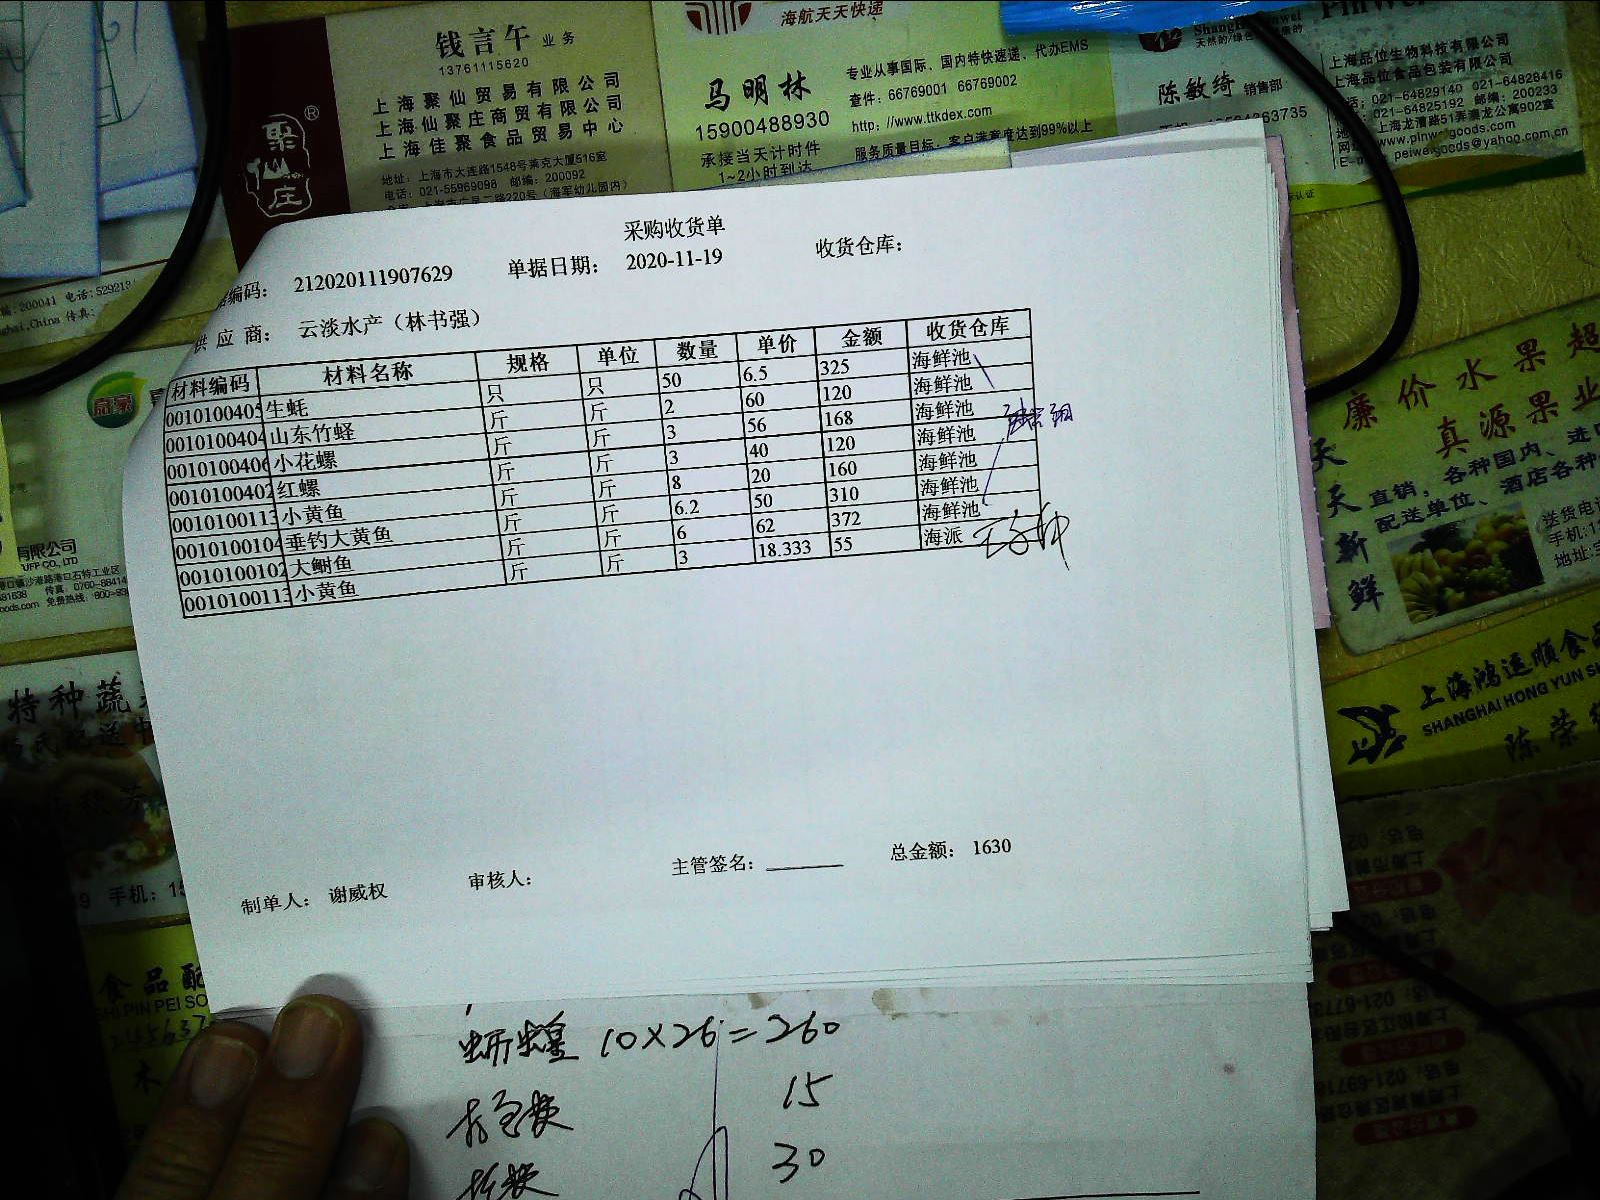 钱言午 业务
13761115620
上海聚仙贸易有限公司
上海仙聚庄商贸有限公司
上海佳聚食品贸易中心
地址：上海市大连路1548号莱克大厦516室
电话：021-55969098 邮编：200092
聚仙庄®
海航天天快递
马明林
15900488930
承接当天计时件
1~2小时到达
专业从事国际、国内特快速递、代办EMS
查件：66769001 66769002
http://www.ttkdex.com
服务质量目标：客户满意度达到99%以上
陈敏绮 销售部
上海品位生物科技有限公司
上海品位食品包装有限公司
电话：021-64829140 021-64828416
021-64825192 邮编：200233
采购收货单
编码： 212020111907629 单据日期： 2020-11-19 收货仓库：
供应商： 云淡水产（林书强）
材料编码 材料名称 规格 单位 数量 单价 金额 收货仓库
0010100405 生蚝 只 只 50 6.5 325 海鲜池
0010100404 山东竹蛏 斤 斤 2 60 120 海鲜池
0010100406 小花螺 斤 斤 3 56 168 海鲜池
0010100402 红螺 斤 斤 3 40 120 海鲜池
0010100113 小黄鱼 斤 斤 8 20 160 海鲜池
0010100104 垂钓大黄鱼 斤 斤 6.2 50 310 海鲜池
0010100102 大鲥鱼 斤 斤 6 62 372 海鲜池
0010100113 小黄鱼 斤 斤 3 18.333 55 海派
制单人： 谢威权 审核人： 主管签名： 总金额： 1630
10×26=260
15
30
廉价水果超
真源果业
天天新鲜
直销，各种国内、进口
配送单位、酒店各种
送货电话
手机:1
地址:
上海鸿运顺食品
SHANGHAI HONG YUN SH
陈荣
有限公司
特种蔬
手机：15
食品配